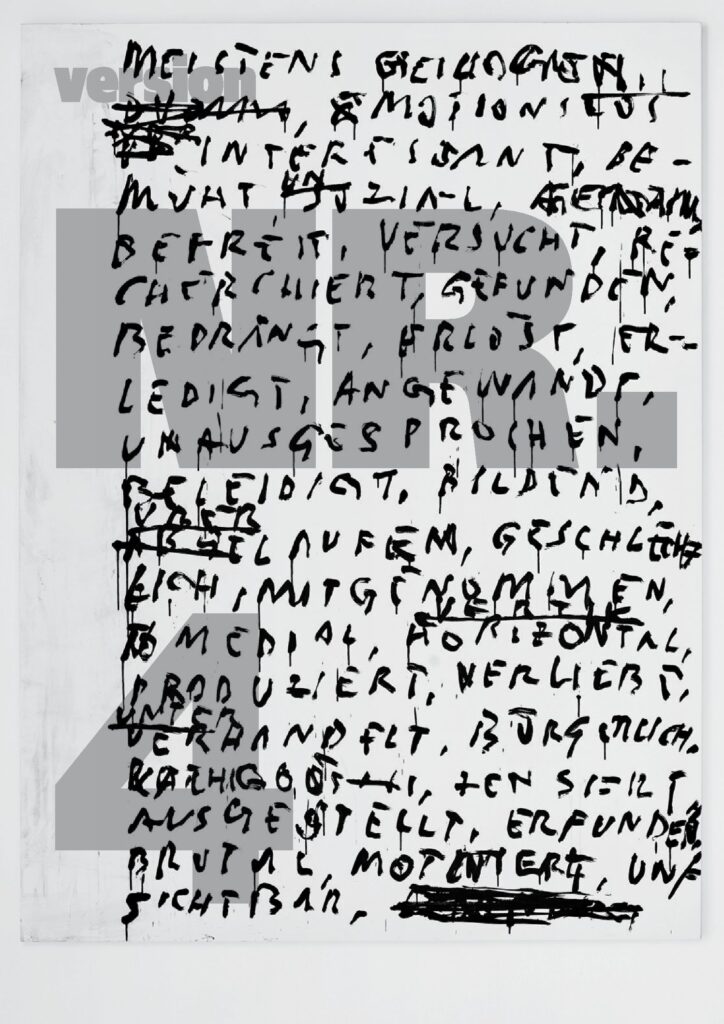 version
NR.
4
MEISTENS GELUNGEN,
, EMOTIONSLOS
INTERESSANT, BE-
MÜHT, UNSOZIAL,
BEFREIT, VERSUCHT, RE-
CHERCHIERT, GEFUNDEN,
BEDRÄNGT, ERLÖST, ER-
LEDIGT, ANGEWANDT,
UNAUSGESPROCHEN,
BELEIDIGT, BILDEND,
ÜBER
LAUFEN, GESCHLECHT
LICH, MITGENOMMEN,
MEDIAL, HORIZONTAL,
PRODUZIERT, VERLIEBT,
UNTER
VERHANDELT, BÜRGERLICH,
, ZENSIERT
AUSGESTELLT, ERFUNDEN,
BRUTAL, MOTIVIERT, UN
SICHTBAR,